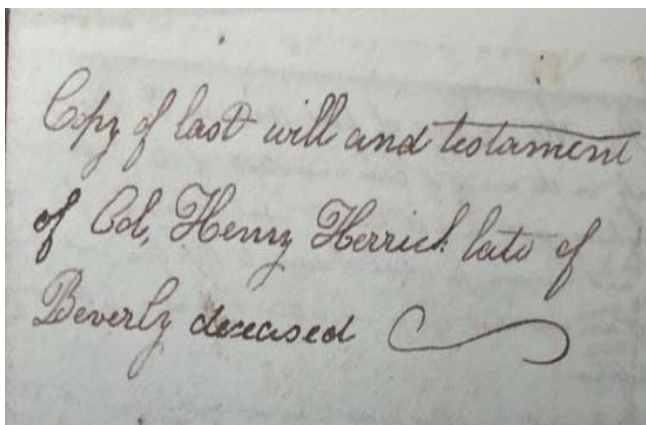 Copy of last will and testament
of Col, Henry Herrick late of
Beverly deceased